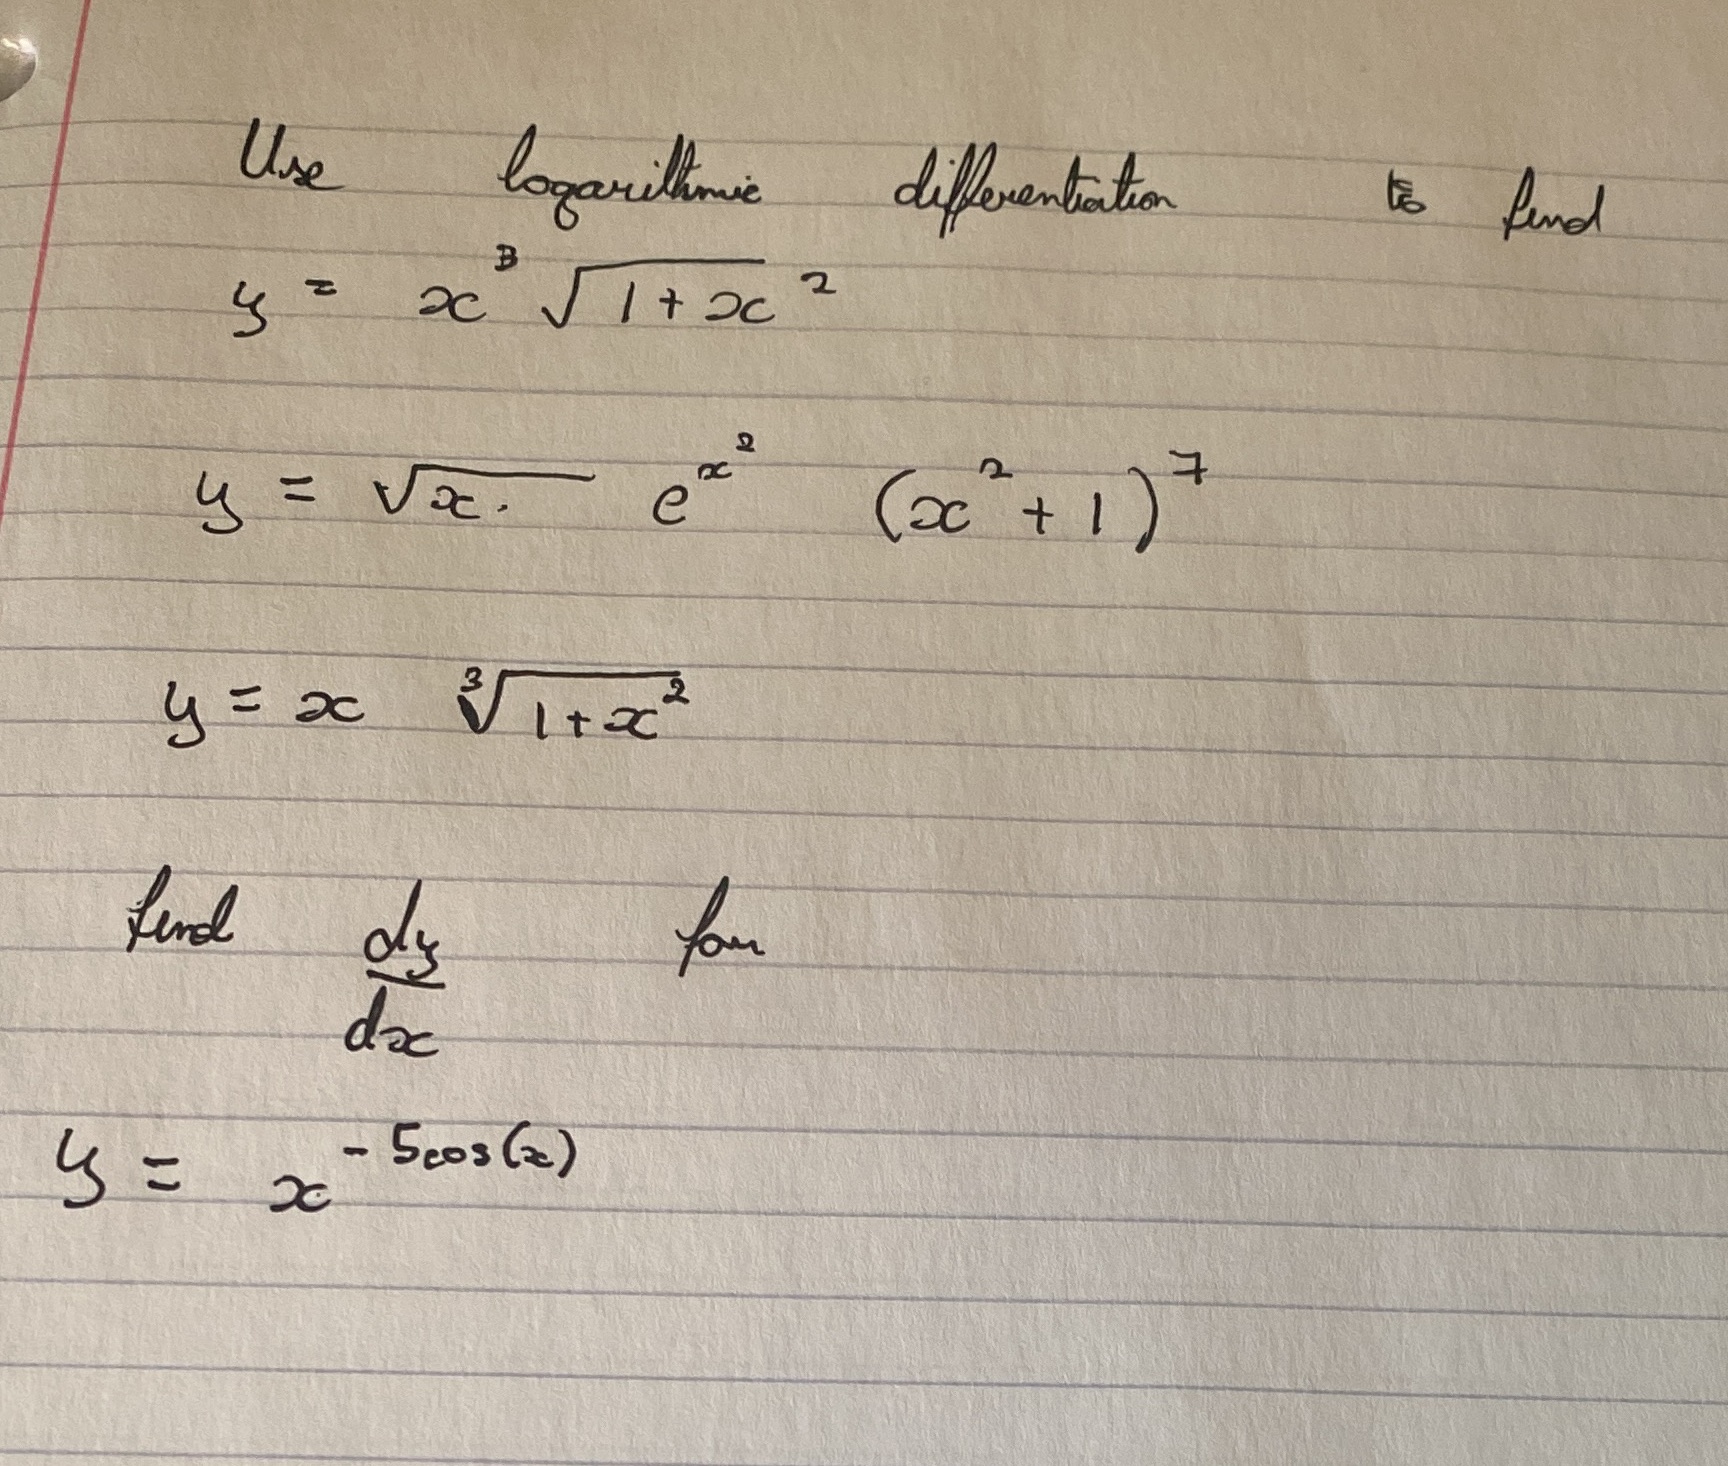 Use logarithmic differentiation to find
y = x³ √(1+x)²
y = √x. e^x² (x²+1)⁷
y = x ∛(1+x²)
find dy/dx for
y = x^-5cos(x)